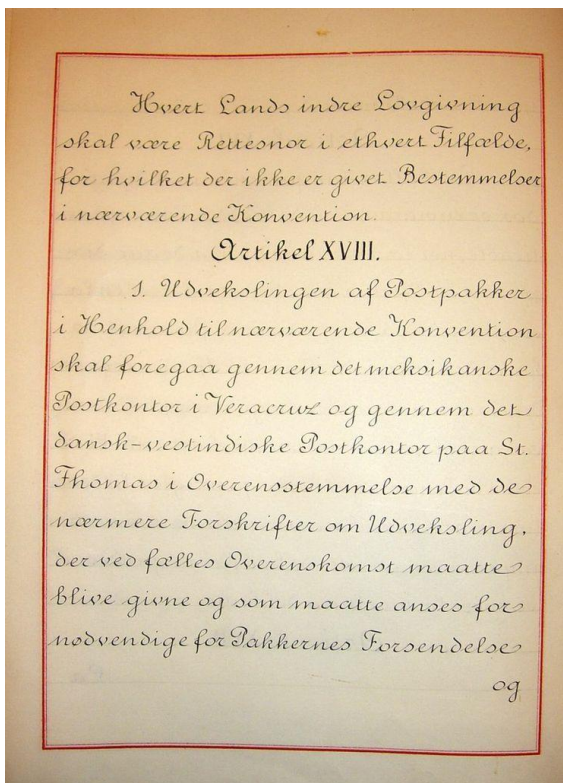 Hvert Lands indre Lovgivning
skal være Rettesnor i ethvert Tilfælde,
for hvilket der ikke er givet Bestemmelser
i nærværende Konvention.
Artikel XVIII.
1. Udvekslingen af Postpakker
i Henhold til nærværende Konvention
skal foregaa gennem det meksikanske
Postkontor i Veracruz og gennem det
dansk-vestindiske Postkontor paa St.
Thomas i Overensstemmelse med de
nærmere Forskrifter om Udveksling,
der ved fælles Overenskomst maatte
blive givne og som maatte anses for
nødvendige for Pakkernes Forsendelse
og